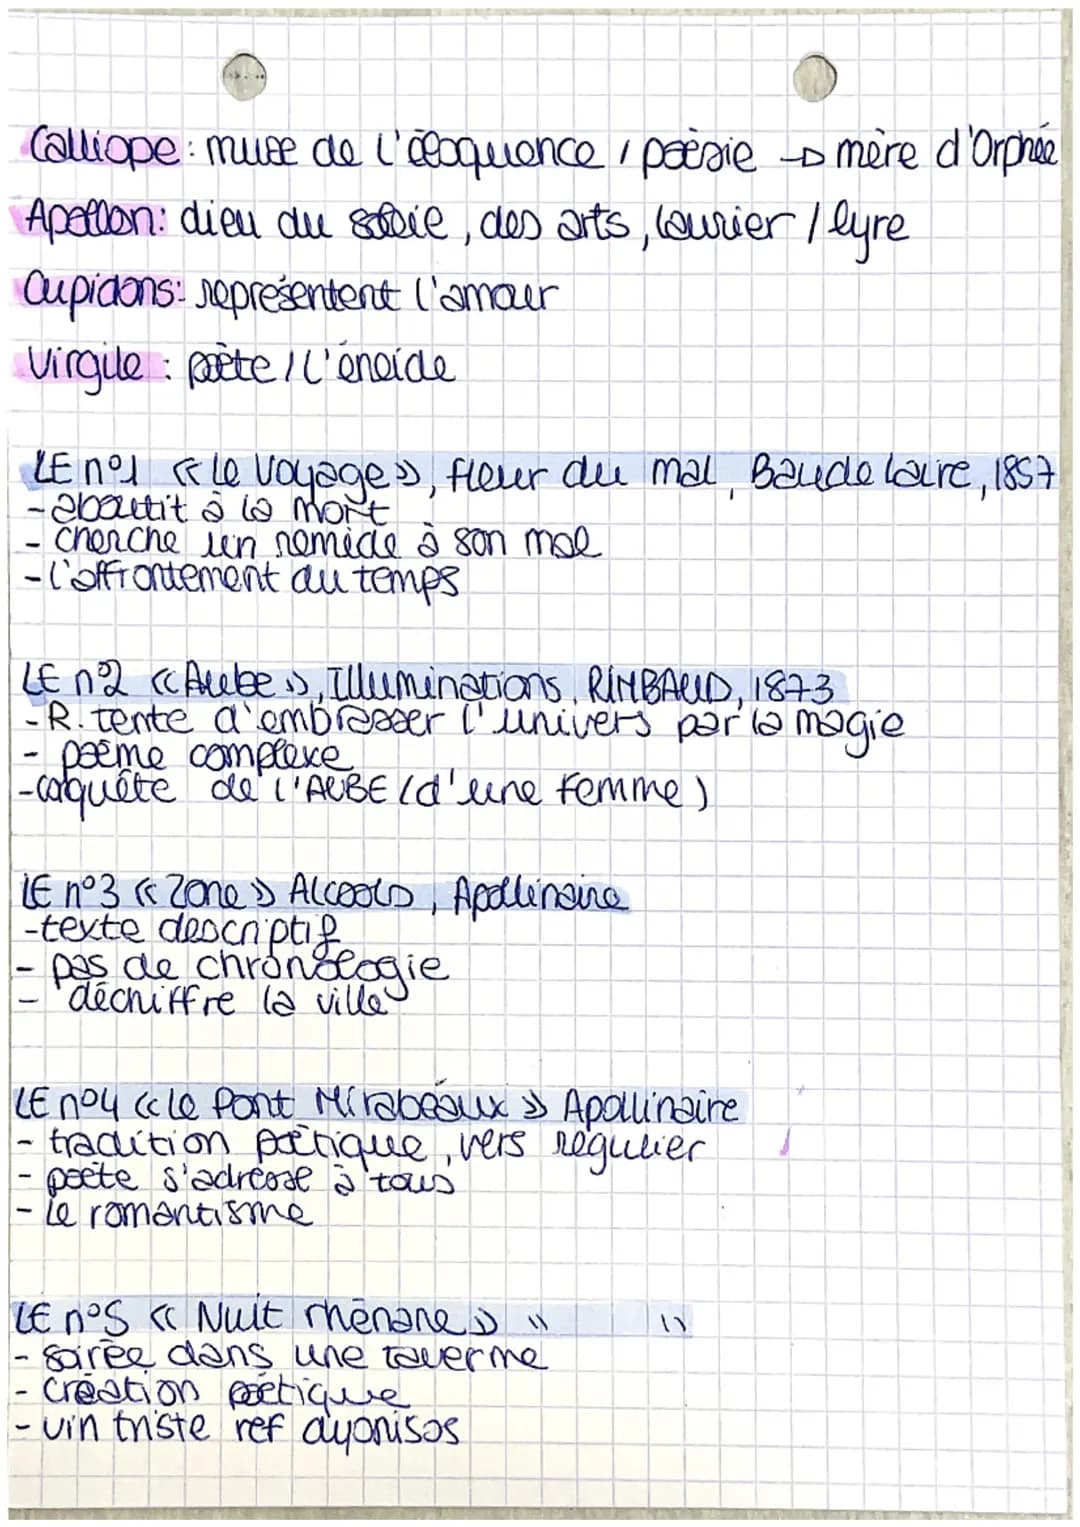 Calliope: muse de l'éloquence / poèsie → mère d'Orphée
Apollon: dieu du soleie, des arts, laurier / lyre
Cupidons: représentent l'amour
Virgile : poète / l'énéide
LE n°1 «le Voyage», fleur du mal, Baudelaire, 1857
-aboutit à la mort
- cherche un remède à son mal
-l'affrontement du temps
LE n°2 «Aube», Illuminations, RIMBAUD, 1873
-R. tente d'embrasser l'univers par la magie
- poème complexe
-conquête de l'AUBE (d'une femme)
LE n°3 «Zone» Alcools, Apollinaire
-texte descriptif
- pas de chronologie
- déchiffre la ville
LE n°4 «le Pont Mirabeaux» Apollinaire
- tradition poètique, vers régulier
- poète s'adresse à tous
- Le romantisme
LE n°5 «Nuit rhénane» " "
- soirée dans une taverme
- création poètique
- vin triste ref dyonisos